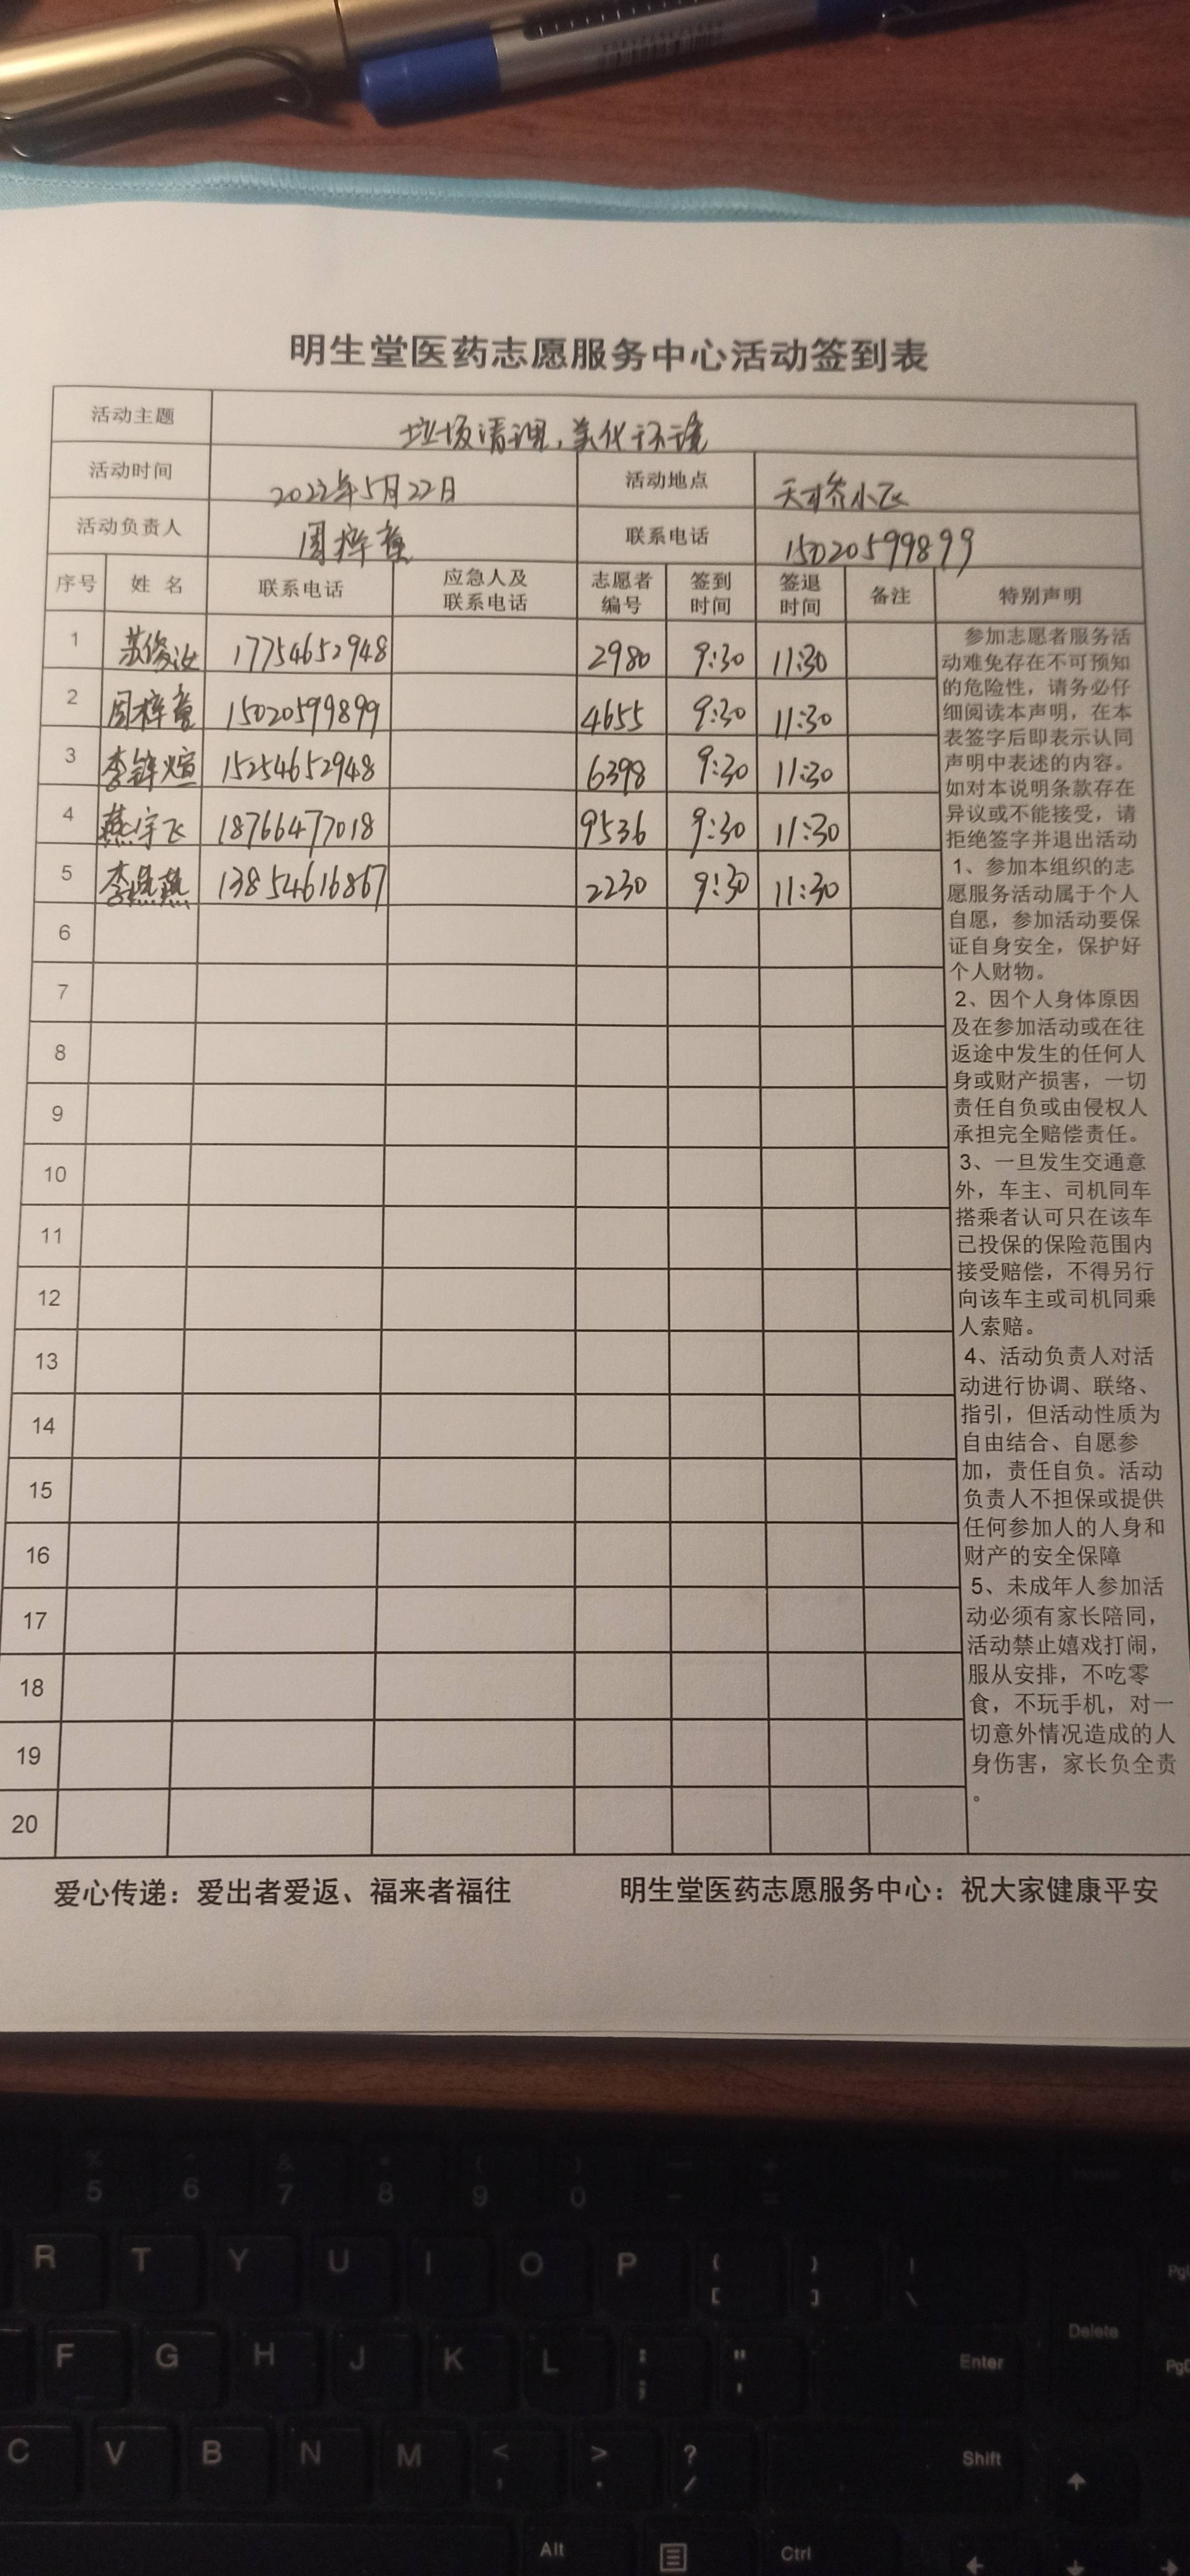 明生堂医药志愿服务中心活动签到表
活动主题 垃圾清理,美化环境
活动时间 2022年5月22日 活动地点
活动负责人 周梓童 联系电话 15020599899
序号 姓名 联系电话 应急人及联系电话 志愿者编号 签到时间 签退时间 备注 特别声明
1 17754652948 2980 9:30 11:30
2 周梓童 15020599899 4655 9:30 11:30
3 15254652948 6398 9:30 11:30
4 燕宇飞 18766477018 9536 9:30 11:30
5 13854616867 2230 9:30 11:30
6
7
8
9
10
11
12
13
14
15
16
17
18
19
20
参加志愿者服务活
动难免存在不可预知
的危险性,请务必仔
细阅读本声明,在本
表签字后即表示认同
声明中表述的内容。
如对本说明条款存在
异议或不能接受,请
拒绝签字并退出活动
1、参加本组织的志
愿服务活动属于个人
自愿,参加活动要保
证自身安全,保护好
个人财物。
2、因个人身体原因
及在参加活动或在往
返途中发生的任何人
身或财产损害,一切
责任自负或由侵权人
承担完全赔偿责任。
3、一旦发生交通意
外,车主、司机同车
搭乘者认可只在该车
已投保的保险范围内
接受赔偿,不得另行
向该车主或司机同乘
人索赔。
4、活动负责人对活
动进行协调、联络、
指引,但活动性质为
自由结合、自愿参
加,责任自负。活动
负责人不担保或提供
任何参加人的人身和
财产的安全保障
5、未成年人参加活
动必须有家长陪同,
活动禁止嬉戏打闹,
服从安排,不吃零
食,不玩手机,对一
切意外情况造成的人
身伤害,家长负全责
。
爱心传递:爱出者爱返、福来者福往 明生堂医药志愿服务中心:祝大家健康平安
% ^ & * ( )
5 6 7 8 9 0 - =
R T Y U I O P { [ } ] | \
Delete
F G H J K L : ; " ' Enter
C V B N M < , > . ? / Shift
Alt Ctrl